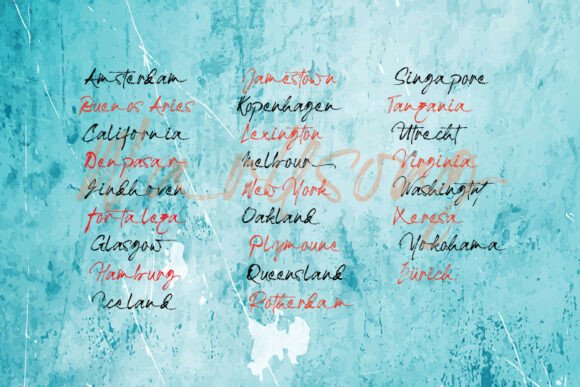 Amsterdam
Buenos Aries
California
Denpasar
Eindhoven
Fortaleza
Glasgow
Hamburg
Iceland
Jamestown
Kopenhagen
Lexington
Melbour
New York
Oakland
Plymoune
Queensland
Rotherdam
Singapore
Tanzania
Utrecht
Virginia
Xeresa
Yokohama
Zürich